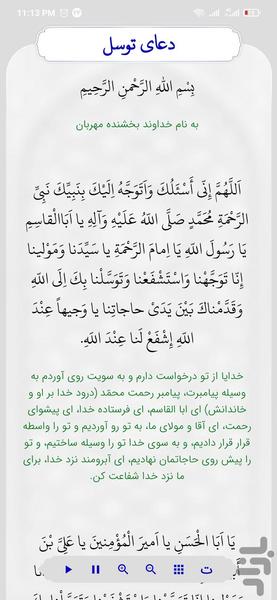 11:13 PM
دعای توسل
بِسْمِ اللهِ الرَّحْمنِ الرَّحِیمِ
به نام خداوند بخشنده مهربان
اَللّهُمَّ اِنّی أَسْئَلُكَ وَاَتَوَجَّهُ اِلَیْكَ بِنَبِیِّكَ نَبِیِّ
الرَّحْمَةِ مُحَمَّدٍ صَلَّی اللهُ عَلَیْهِ وَآلِهِ یا اَبَاالْقاسِمِ
یا رَسُولَ اللهِ یا اِمامَ الرَّحْمَةِ یا سَیِّدَنا وَمَوْلینا
اِنّا تَوَجَّهْنا وَاسْتَشْفَعْنا وَتَوَسَّلْنا بِكَ اِلَی اللهِ
وَقَدَّمْناكَ بَیْنَ یَدَیْ حاجاتِنا یا وَجیهاً عِنْدَ
اللهِ اِشْفَعْ لَنا عِنْدَ اللهِ.
خدایا از تو درخواست دارم و به سویت روی آوردم به
وسیله پیامبرت، پیامبر رحمت محمّد (درود خدا بر او و
خاندانش) ای ابا القاسم، ای فرستاده خدا، ای پیشوای
رحمت، ای آقا و مولای ما، به تو رو آوردیم و تو را واسطه
قرار قرار دادیم، و به سوی خدا تو را وسیله ساختیم، و تو
را پیش روی حاجاتمان نهادیم، ای آبرومند نزد خدا، برای
ما نزد خدا شفاعت کن.
یا اَبَا الْحَسَنِ یا اَمیرَ الْمُؤْمِنینَ یا عَلِیَّ بْنَ
ت
بازار